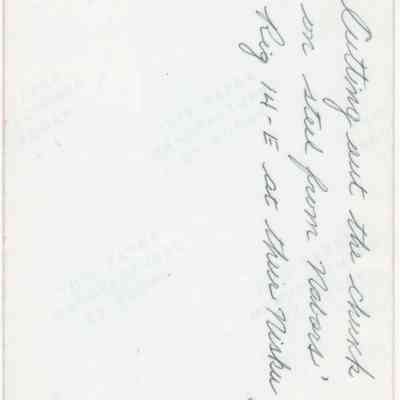 Cutting out the chunk
on steel from Nabors'
Rig 14-E at their Nisku